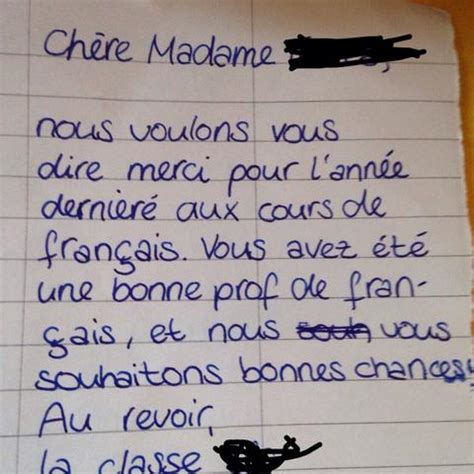 Chère Madame
nous voulons vous
dire merci pour l'année
dernièré aux cours de
français. Vous avez été
une bonne prof de fran-
çais, et nous vous
souhaitons bonnes chances.
Au revoir,
la classe